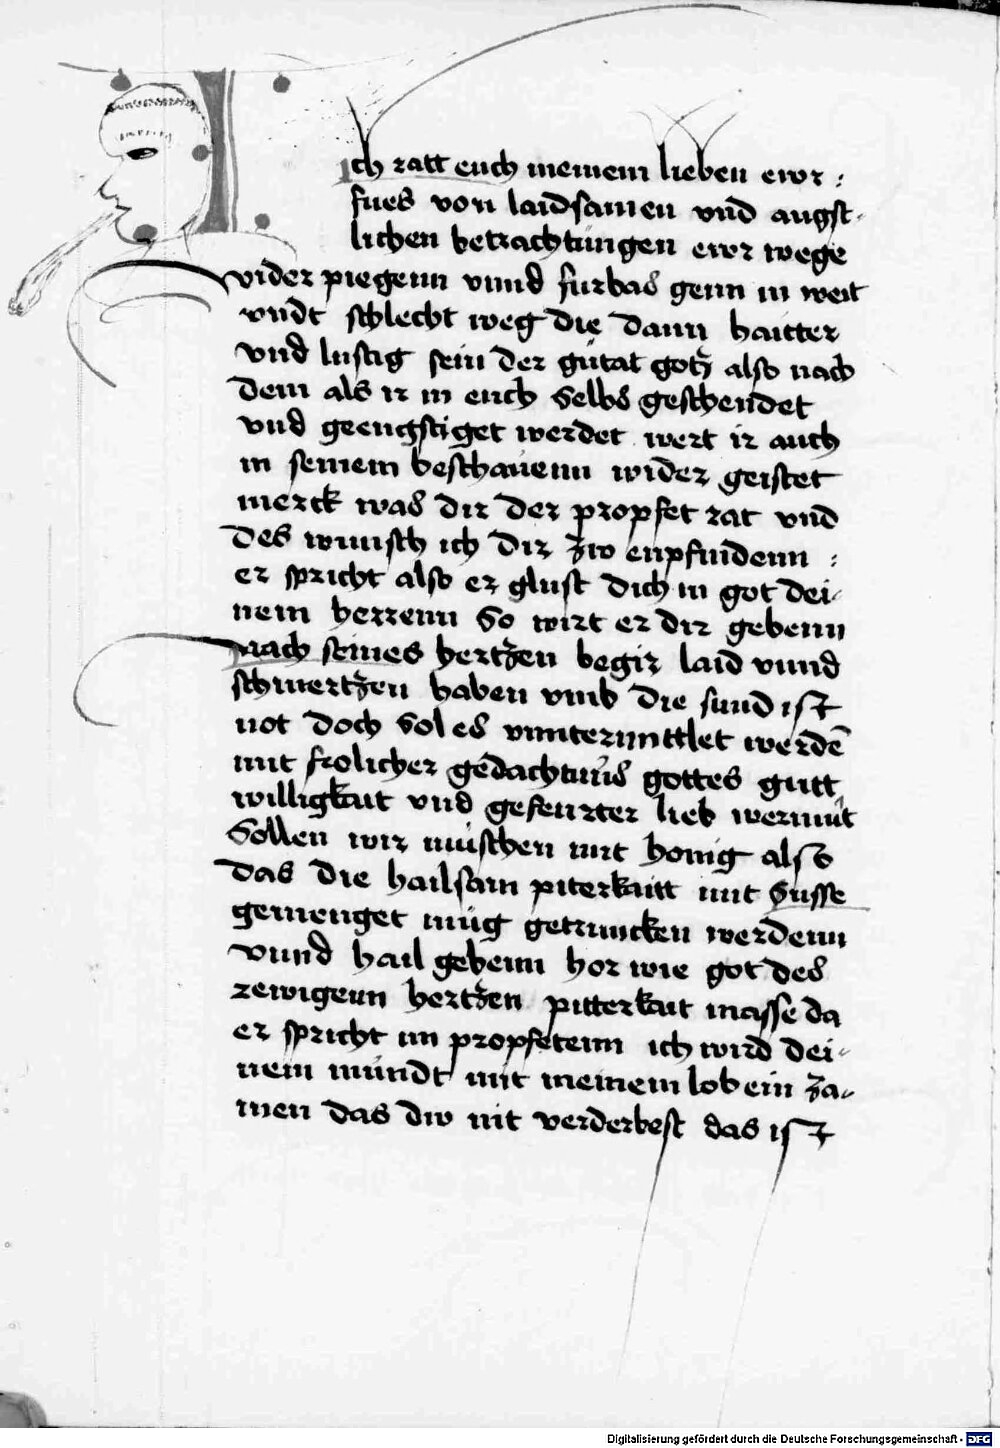 Ich ratt euch meinem lieben ewr :
fues von laidsamen vnd angst-
lichen betrachtungen ewr wege
wider piegenn vnnd furbas genn in weit
vndt schlecht weg die dann haitter
vnd lustig sein der gütat gotz also nach
dem als ir in euch selbs geschendet
vnd geengstiget werdet wert ir auch
in seinem beschauenn wider geistet
merck was dir der propfet rat vnd
des wunsch ich dir zw enpfindenn :
er spricht also er glust dich in got dei-
nem herrenn So wirt er dir gebenn
nach seines hertzen begir laid vnnd
schmertzen haben vmb die sund ist
not doch sol es vnntermittlet werdē
mit frolicher gedachtnüs gottes gutt
willigkait vnd gefeurter lieb wermüt
Sollen wir müschen mit honig also
das die hailsam piterkaitt mit susse
gemenget müg getruncken werdenn
vnnd hail gebenn hor wie got des
rewigenn hertzen pitterkait masse da
er spricht im propfetenn ich wird dei-
nem mündt mit meinem lob ein za-
men das dw nit verderbest das ist
Digitalisierung gefördert durch die Deutsche Forschungsgemeinschaft - DFG